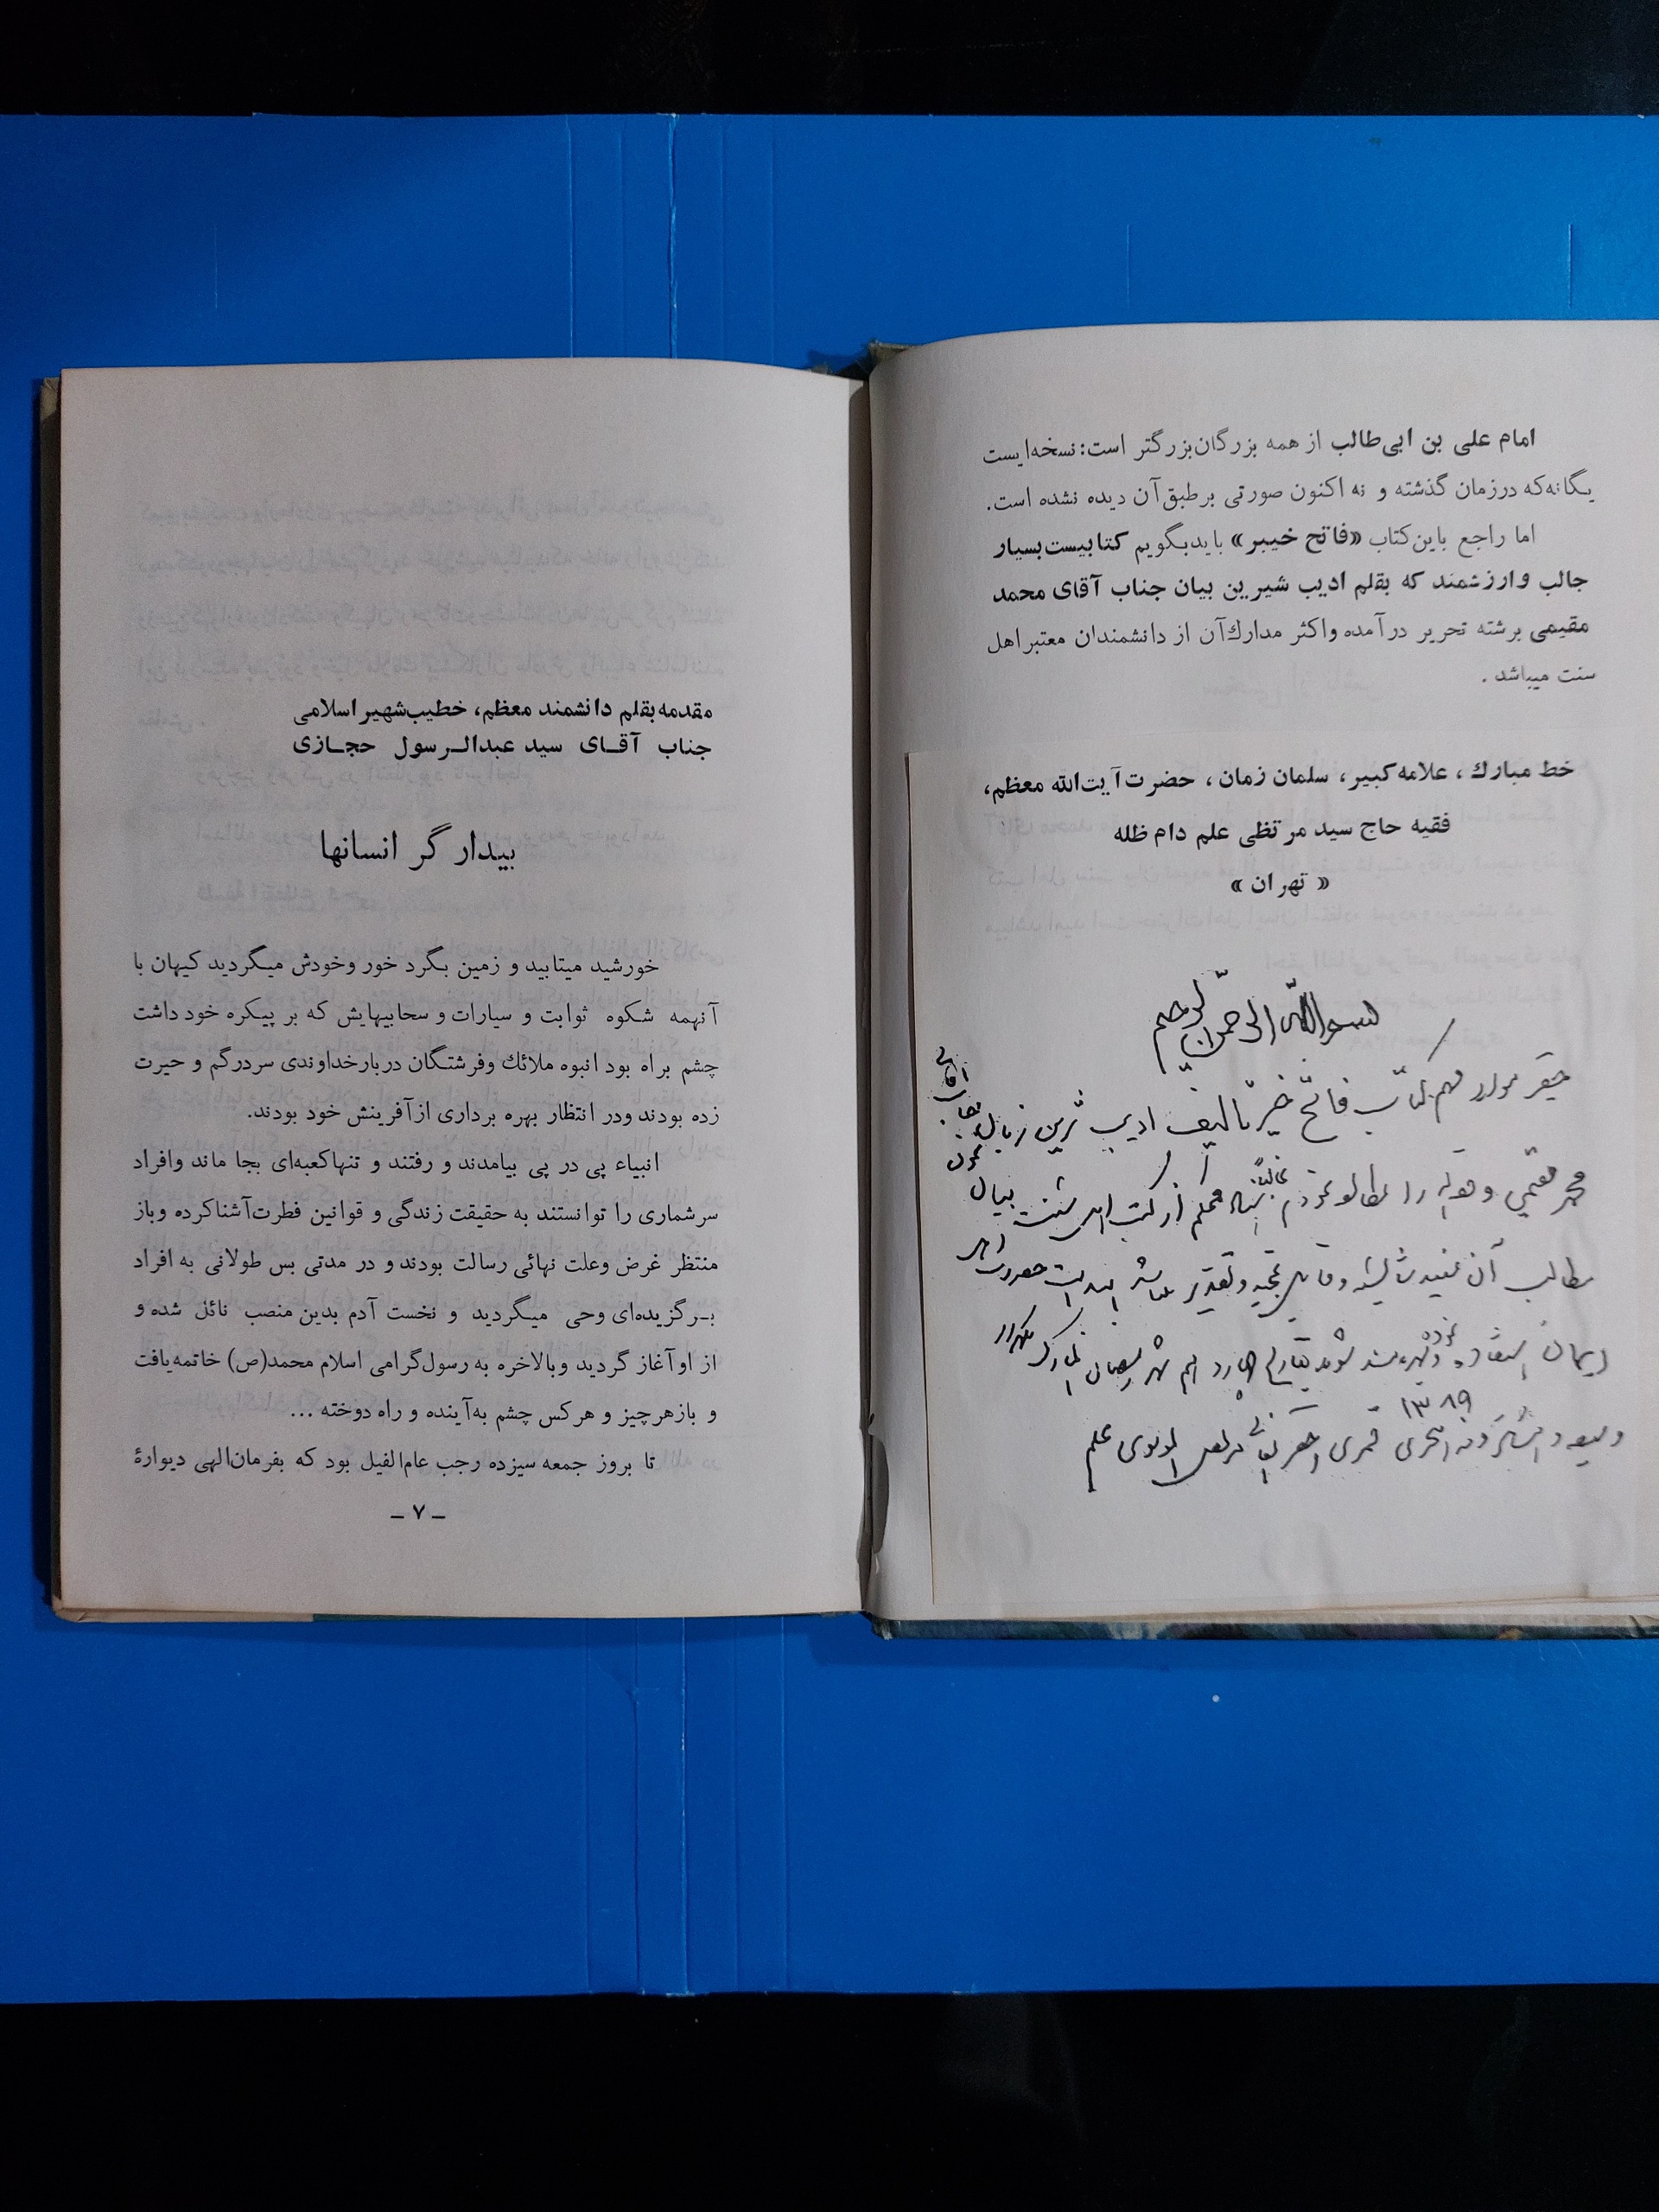 امام علی بن ابی‌طالب از همه بزرگان بزرگتر است: نسخه‌ایست
یگانه که درزمان گذشته و نه اکنون صورتی برطبق آن دیده نشده است.
اما راجع باین کتاب «فاتح خیبر» باید بگویم کتابیست بسیار
جالب وارزشمند که بقلم ادیب شیرین بیان جناب آقای محمد
مقیمی برشته تحریر درآمده واکثر مدارك آن از دانشمندان معتبر اهل
سنت میباشد .
خط مبارك ، علامه کبیر، سلمان زمان ، حضرت آیت‌الله معظم،
فقیه حاج سید مرتظی علم دام ظله
« تهران »
بسم الله الرحمن الرحیم
حقیر موارد مهم کتاب فاتح خیبر تألیف ادیب شیرین زبان جناب آقای
محمد مقیمی را مطالعه نمودم غالباً محکم از کتب اهل سنت بیان نموده
مطالب آن مفید شایسته و قابل تمجید و تقدیر میباشد امید است حضرات اهل
ایمان استفاده نموده و بهره‌مند شوند بتاریخ چهاردهم شهر رمضان المبارک یکهزار
و سیصد و هشتاد و نه ۱۳۸۹ هجری قمری احقر مرتضی الموسوی علم
مقدمه بقلم دانشمند معظم، خطیب شهیر اسلامی
جناب آقـای سید عبدالـرسول حجـازی
بیدار گر انسانها
خورشید میتابید و زمین بگرد خور وخودش میگردید کیهان با
آنهمه شکوه ثوابت و سیارات و سحابیهایش که بر پیکره خود داشت
چشم براه بود انبوه ملائك وفرشتگان دربارخداوندی سردرگم و حیرت
زده بودند ودر انتظار بهره برداری ازآفرینش خود بودند.
انبیاء پی در پی بیامدند و رفتند و تنهاکعبه‌ای بجا ماند وافراد
سرشماری را توانستند به حقیقت زندگی و قوانین فطرت‌آشناکرده وباز
منتظر غرض وعلت نهائی رسالت بودند و در مدتی بس طولانی به افراد
بـرگزیده‌ای وحی میگردید و نخست آدم بدین منصب نائل شده و
از اوآغاز گردید وبالاخره به رسول‌گرامی اسلام محمد(ص) خاتمه‌یافت
و بازهرچیز و هرکس چشم به‌آینده و راه دوخته ...
تا بروز جمعه سیزده رجب عام‌الفیل بود که بفرمان‌الهی دیوارهٔ
ـ ۷ ـ